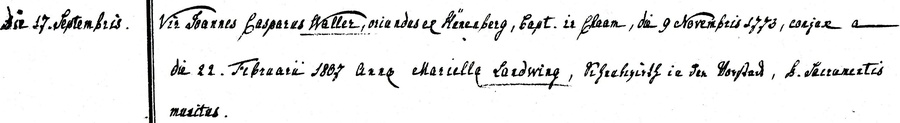 Die 17. Septembris. Vir Joannes Casparus Waller, oriundus ex Hünenberg, bapt. in Chaam, die 9 Novembris 1773, conjux a
die 22. Februarii 1807 Anna Mariella Landwing, in der Vorstad, S. Sacramentis
munitus.